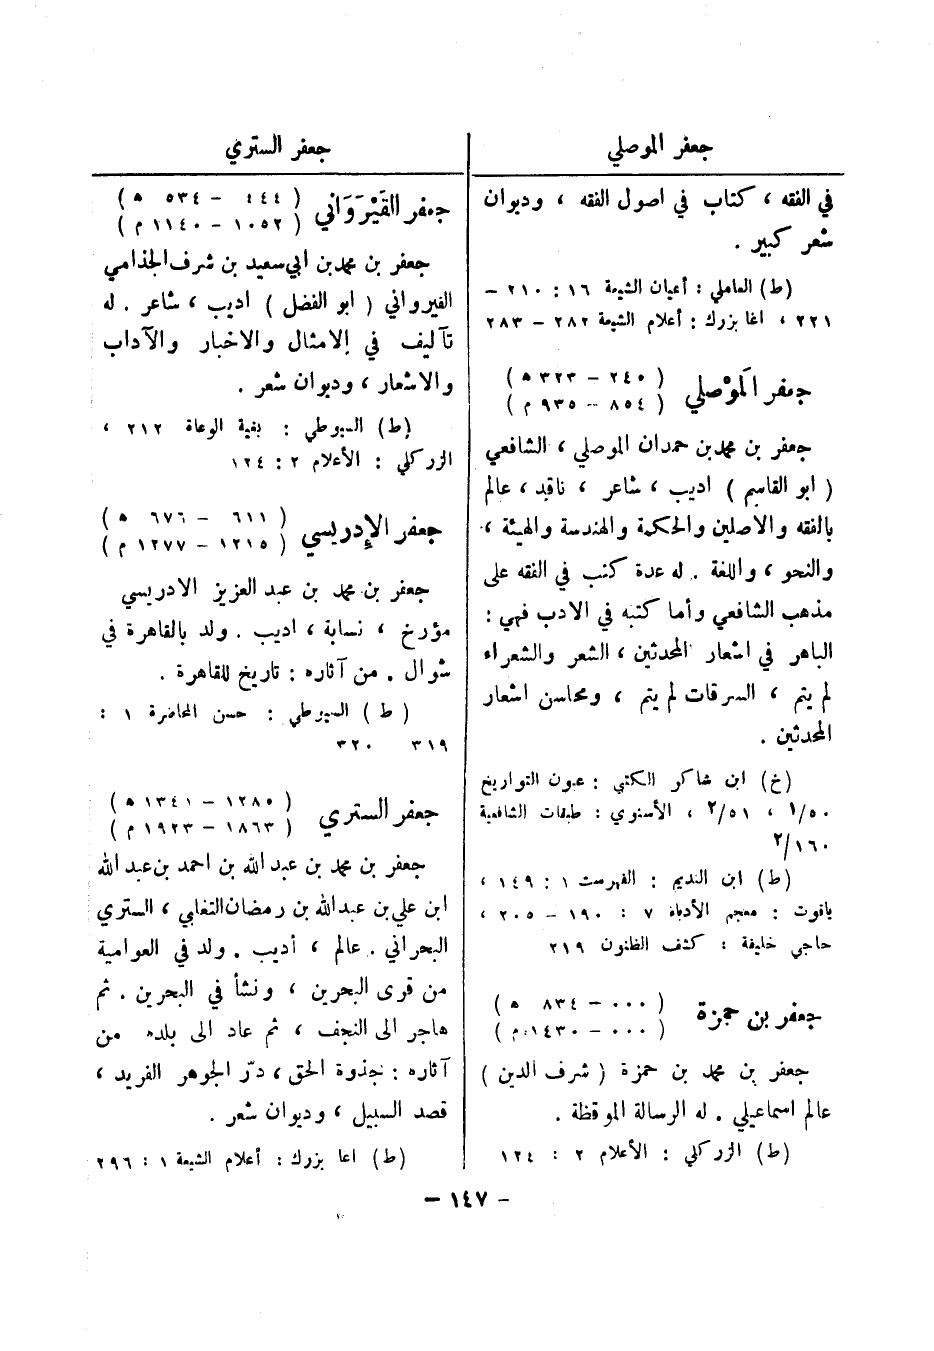 جعفر الموصلي
في الفقه ، كتاب في اصول الفقه ، وديوان
شعر كبير .
(ط) العاملي : أعيان الشيعة ١٦ : ٢١٠ –
٢٢١ ، اغا بزرك : أعلام الشيعة ٢٨٢ – ٢٨٣
جعفر المَوْصلي
( ٢٤٠ – ٣٢٣ ه )
( ٨٥٤ – ٩٣٥ م )
جعفر بن محمد بن حمدان الموصلي ، الشافعي
( ابو القاسم ) اديب ، شاعر ، ناقد ، عالم
بالفقه والاصلين والحكمة والهندسة والهيئة ،
والنحو ، واللغة . له عدة كتب في الفقه على
مذهب الشافعي وأما كتبه في الادب فهي :
الباهر في اشعار المحدثين ، الشعر والشعراء
لم يتم ، السرقات لم يتم ، ومحاسن اشعار
المحدثين .
(خ) ابن شاكر الكتبي : عيون التواريخ
٥٠/١ ، ٥١/٢ ، الأسنوي : طبقات الشافعية
١٦٠/٢
(ط) ابن النديم : الفهرست ١ : ١٤٩ ،
ياقوت : معجم الأدباء ٧ : ١٩٠ – ٢٠٥ ،
حاجي خليفة : كشف الظنون ٢١٩
جعفر بن حمزة
( ٠٠٠ – ٨٣٤ ه )
( ٠٠٠ – ١٤٣٠ م )
جعفر بن محمد بن حمزة ( شرف الدين )
عالم اسماعيلي . له الرسالة الموقظة .
(ط) الزركلي : الأعلام ٢ : ١٢٤
جعفر الستري
جعفر القَيْرَوَاني
( ٤٤٤ – ٥٣٤ ه )
( ١٠٥٢ – ١١٤٠ م )
جعفر بن محمد بن ابي سعيد بن شرف الجذامي
القيرواني ( ابو الفضل ) اديب ، شاعر . له
تآليف في الامثال والاخبار والآداب
والاشعار ، وديوان شعر .
(ط) السيوطي : بغية الوعاة ٢١٢ ،
الزركلي : الأعلام ٢ : ١٢٤
جعفر الإدريسي
( ٦١١ – ٦٧٦ ه )
( ١٢١٥ – ١٢٧٧ م )
جعفر بن محمد بن عبد العزيز الادريسي
مؤرخ ، نسابة ، اديب . ولد بالقاهرة في
شوال . من آثاره : تاريخ للقاهرة .
( ط ) السيوطي : حسن المحاضرة ١ :
٣١٩ ٣٢٠
جعفر الستري
( ١٢٨٠ – ١٣٤١ ه )
( ١٨٦٣ – ١٩٢٣ م )
جعفر بن محمد بن عبد الله بن احمد بن عبد الله
ابن علي بن عبدالله بن رمضان التغلبي ، الستري
البحراني . عالم ، أديب . ولد في العوامية
من قرى البحرين ، ونشأ في البحرين . ثم
هاجر الى النجف ، ثم عاد الى بلده من
آثاره : جذوة الحق ، درّ الجوهر الفريد ،
قصد السبيل ، وديوان شعر .
(ط) اغا بزرك : أعلام الشيعة ١ : ٢٩٦
– ١٤٧ –